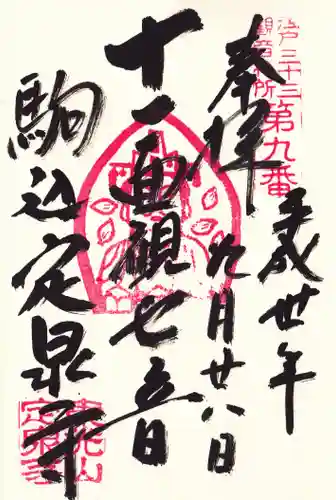 江戸三十三
観音札所
第九番
奉拝
平成卅年
九月廿八日
十一面観世音
駒込定泉寺